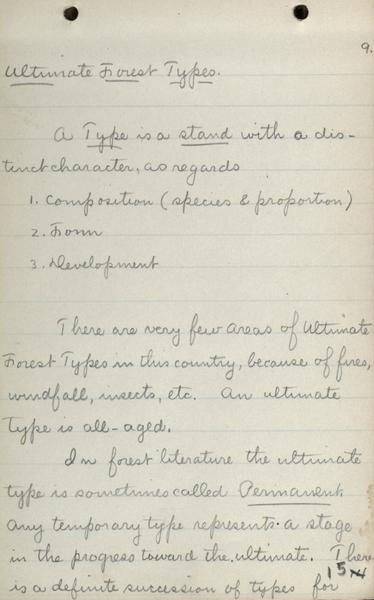 9.
Ultimate Forest Types.
A Type is a stand with a dis-
tinct character, as regards
1. Composition (species & proportion)
2. Form
3. Development
There are very few areas of Ultimate
Forest Types in this country, because of fires,
windfall, insects, etc. An ultimate
Type is all-aged.
In forest literature the ultimate
type is sometimes called Permanent
any temporary type represents a stage
in the progress toward the ultimate. There
is a definite succession of types for
15